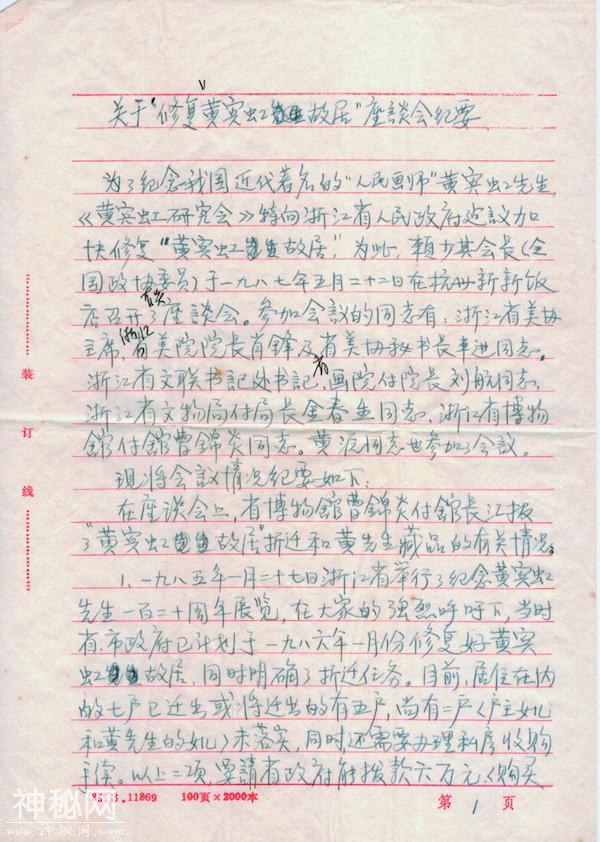 关于“修复黄宾虹故居”座談会纪要
为了纪念我国近代著名的“人民画师”黄宾虹先生,
《黄宾虹研究会》特向浙江省人民政府建议加
快修复“黄宾虹故居”,为此,賴少其会长(全
国政协委员)于一九八七年五月二十二日在杭州新新饭
店召开有关了座談会。参加会议的同志有:浙江省美协
主席,浙江美院院长肖锋及省美协秘书长平进同志。
浙江省文联书記处书記、省画院付院长刘航同志,
浙江省文物局付局長金春生同志、浙江省博物
館付館曹錦炎同志。黄同志也参加了会议。
现将会議情况纪要如下:
在座谈会上,省博物館曹錦炎付館長汇报
了“黄宾虹故居”拆迁和黄先生藏品的有关情况。
1、一九八五年一月二十七日浙江省举行了纪念黄宾虹
先生一百二十周年展览,在大家的强烈呼吁下,当时
省、市政府已计划于一九八六年一月份修复好黄宾
虹故居,同时明确了拆迁任务。目前,居住在内
的七户已迁出或将迁出的有五户,尚有二户(户主女儿
和黄先生的女儿)未落实,同时还需要办理私房收购
手续。以上二项,要請省政府能拨款六万元(购买
装
订
线
.11869 100页×2000本
第 1 页
神秘网